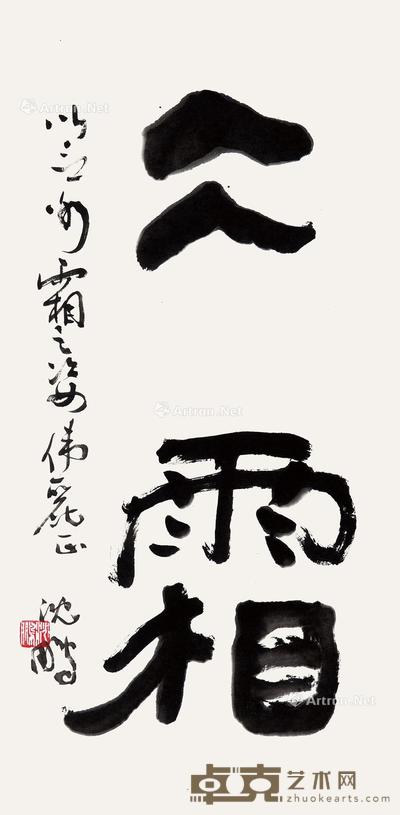 仌霜
霜之姿 伟丽正
沈鹏
Artron.Net
Artron.Net
Artron.Net
卓克艺术网
zhuokearts.com